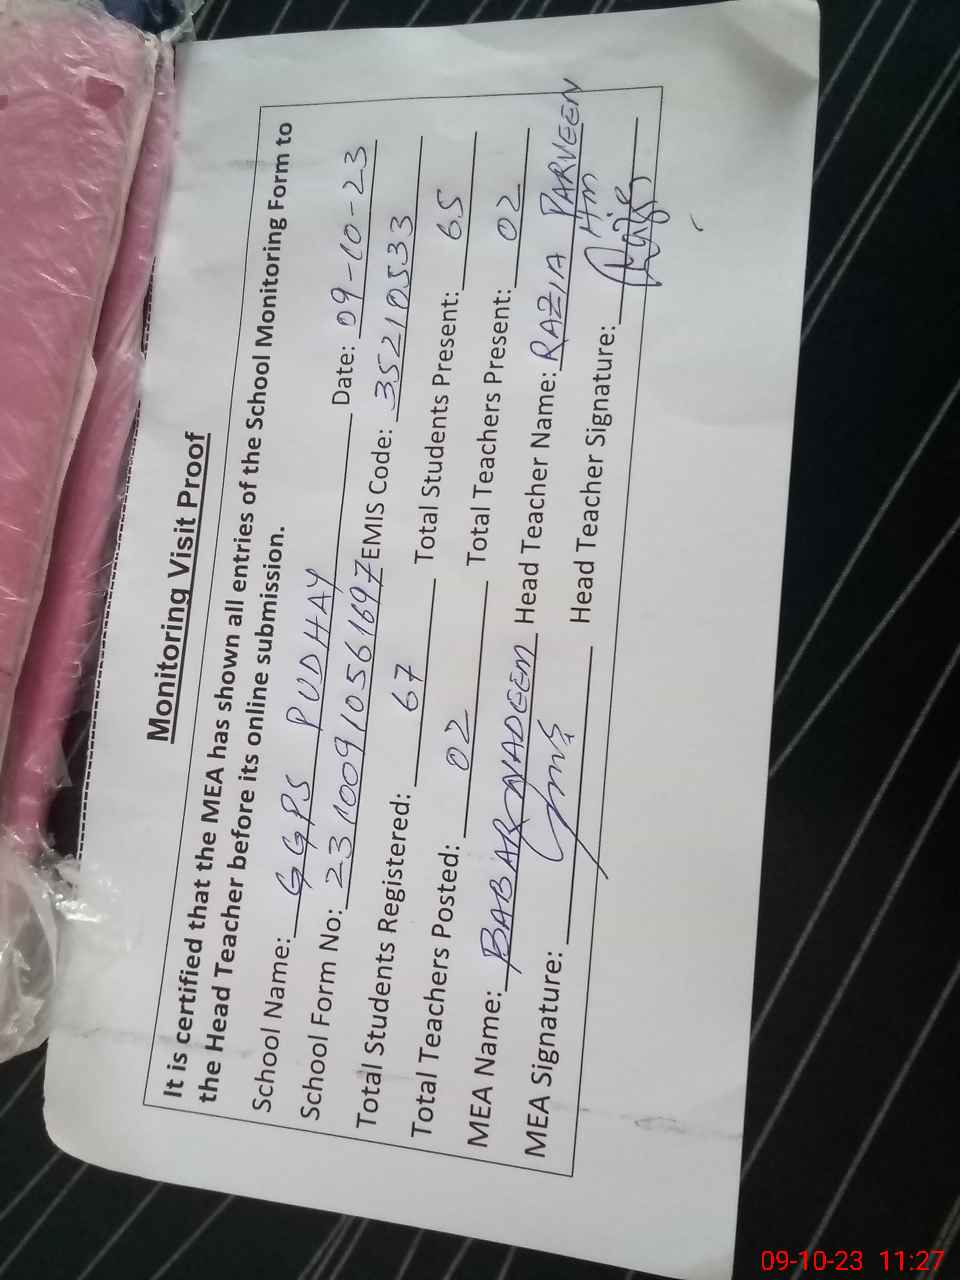 Monitoring Visit Proof
It is certified that the MEA has shown all entries of the School Monitoring Form to
the Head Teacher before its online submission.
School Name: GGPS PUDHAY Date: 09-10-23
School Form No: 23100910561697 EMIS Code: 35210533
Total Students Registered: 67 Total Students Present: 65
Total Teachers Posted: 02 Total Teachers Present: 02
MEA Name: BABAR NADEEM Head Teacher Name: RAZIA PARVEEN
HM
MEA Signature: Head Teacher Signature:
09-10-23 11:27